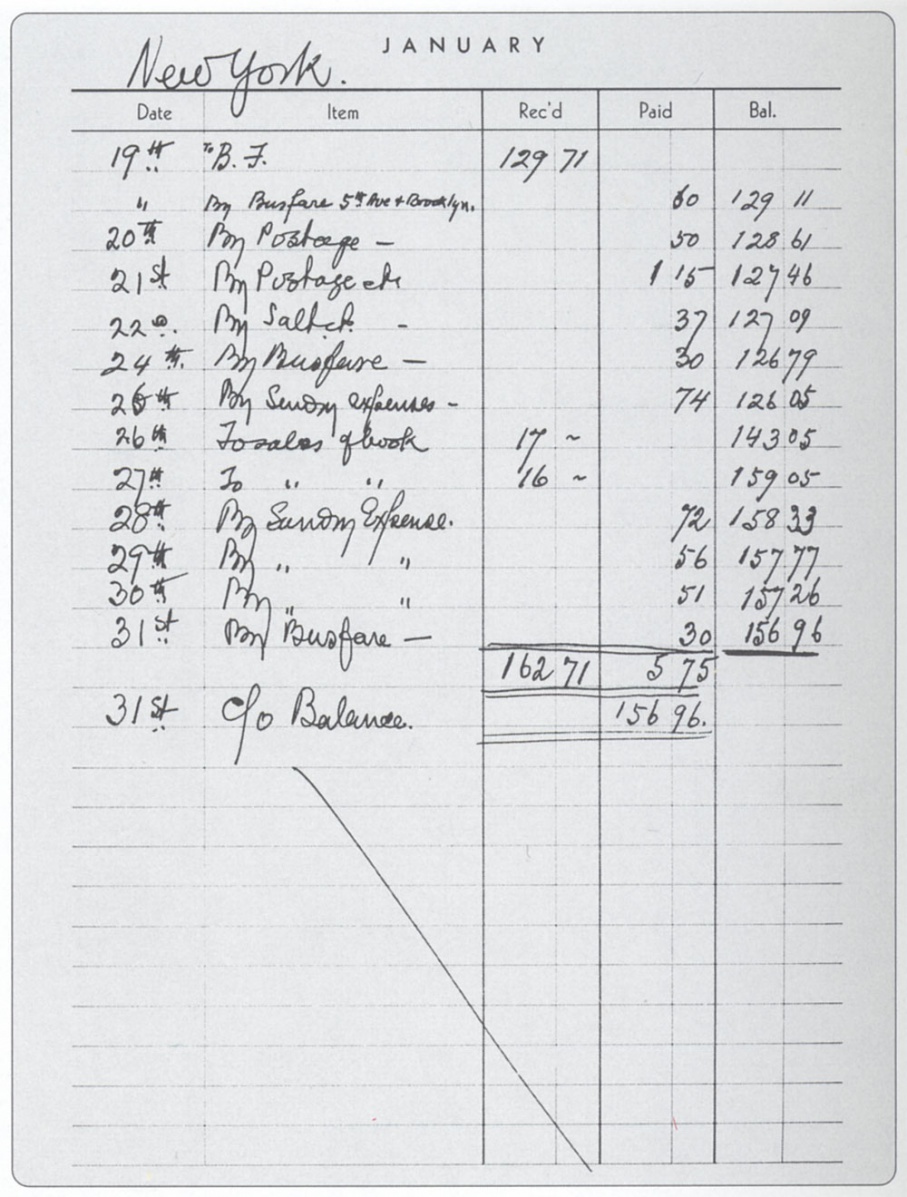 JANUARY
New York.
Date Item Rec'd Paid Bal.
19th To B. F. 129 71
" By Busfare 5th Ave + Brooklyn. 60 129 11
20th By Postage — 50 128 61
21st By Postage etc 1 15 127 46
22nd. By Salt - 37 127 09
24th. By Busfare — 30 126 79
25th By Sundry expenses - 74 126 05
26th To sales of book 17 ~ 143 05
27th To " " 16 ~ 159 05
28th By Sundry Expense. 72 158 33
29th By " " 56 157 77
30th By " " 51 157 26
31st By Busfare — 30 156 96
162 71 5 75
31st c/o Balance. 156 96.